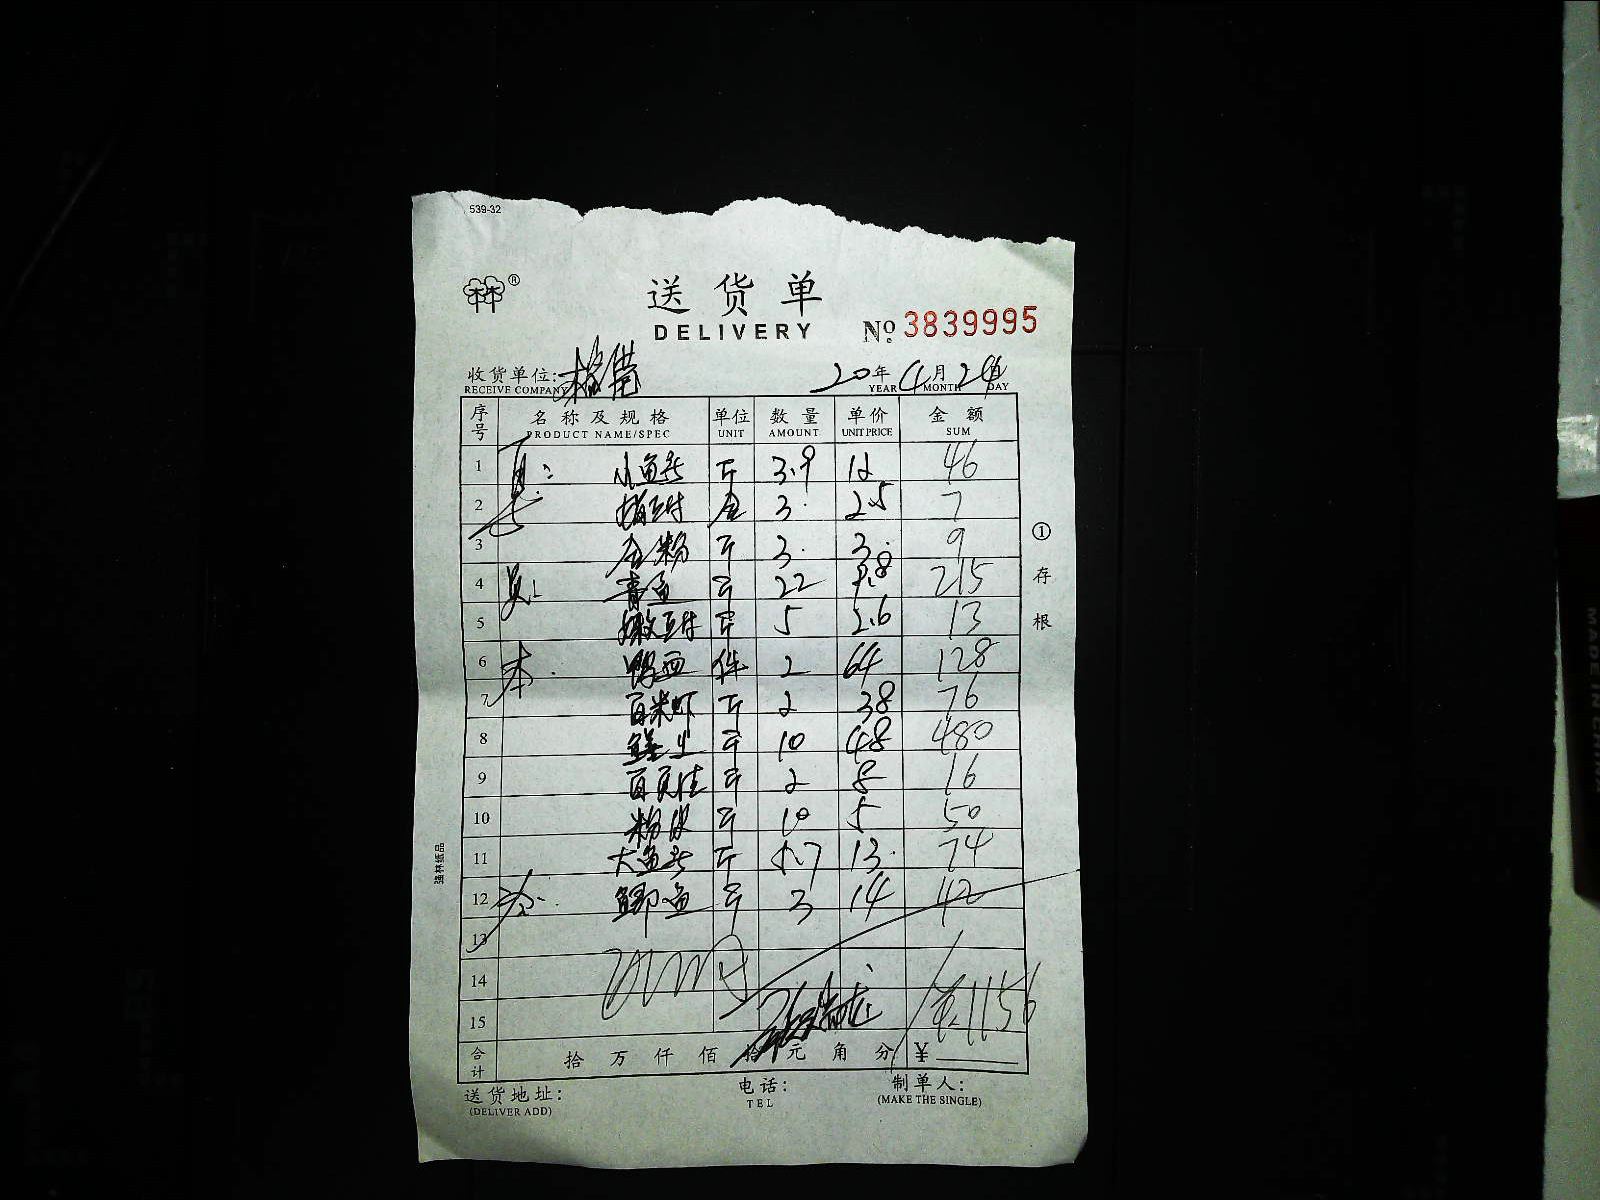 539-32
林®
送货单
DELIVERY
№ 3839995
收货单位: 20年4月24日
RECEIVE COMPANY YEAR MONTH DAY
序号 名称及规格 单位 数量 单价 金额
PRODUCT NAME/SPEC UNIT AMOUNT UNIT PRICE SUM
1 小鱼头 斤 3.9 12 46
2 豆付 盒 3 2.5 7
3 粉 斤 3 3 9
4 青鱼 斤 22 9.8 215
5 嫩豆付 斤 5 2.6 13
6 本 鸭血 件 2 64 128
7 白米虾 斤 2 38 76
8 斤 10 48 480
9 百页 斤 2 8 16
10 粉皮 斤 10 5 50
11 大鱼头 斤 5.7 13 74
12 鲫鱼 斤 3 14 42
13
14
15 1156
合计 拾万仟佰拾元角分 ¥
送货地址: 电话: 制单人:
(DELIVER ADD) TEL (MAKE THE SINGLE)
①存根
强林纸品
MADE IN CHINA